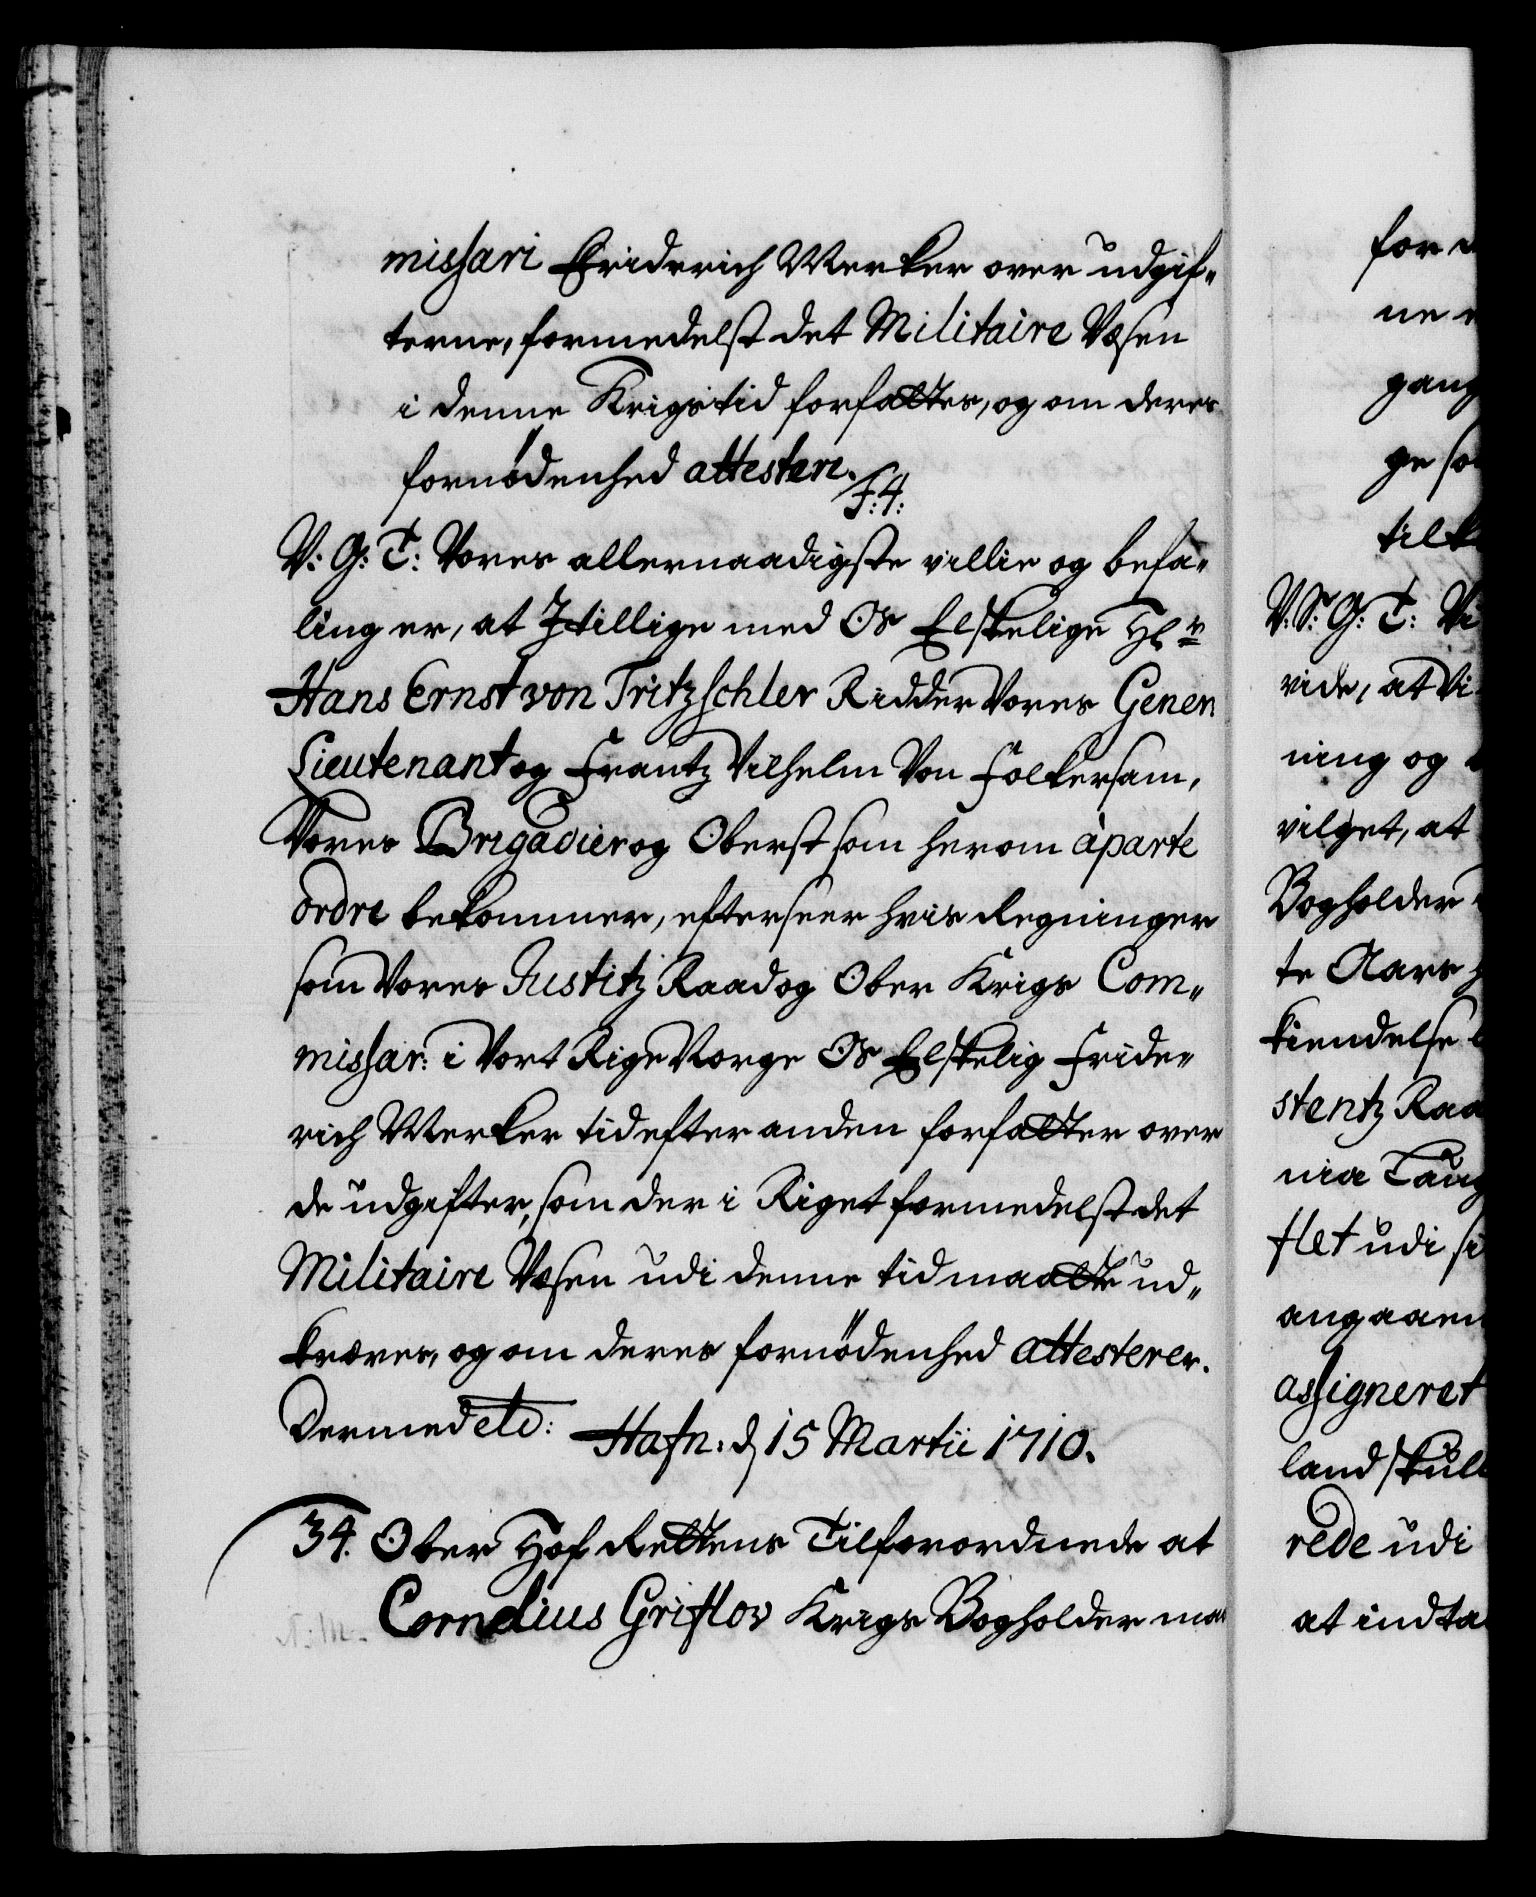 missari Friderich Werker over udgif„
terne, formedelst det Militaire Væsen
i denne Krigstid forfattes, og om deres
fornødenhed attestere.
F: 4:
V: G: T: Vores allernaadigste villie og befa„
ling er, at I tillige med Os Elskelige Hr
Hans Ernst von Tritzschler Ridder Vores Genera
Lieutenant og Frantz Vilhelm Von Folkersam,
Vores Brigadier og Oberst som herom àparte
ordre bekommer, efterseer hvis Regninger
som Vores Justitz Raad og Ober Krigs Com„
missar: i Vort Rige Norge Os Elskelig Fride„
rich Werker tid efter anden forfatter over
de udgifter, som der i Riget formedelst det
Militaire Væsen udi denne tid maatte ud„
kræves, og om deres fornødenhed attesterer.
Dermed etc: Hafn: d 15 Martii 1710.
34. Ober Hof Rettens Tilforordnede at
Cornelius Griflov Krigs Bogholder maa
for
ne
gang
ge so
tilk
V: S: G: T: Vi
vide, at Vi
ning og
vilget, at
Bogholder
te Aars
kiendelse
stentz Raa
nia Taug
flet udi si
angaaen
assigneret
land skull
rede udi
at indta